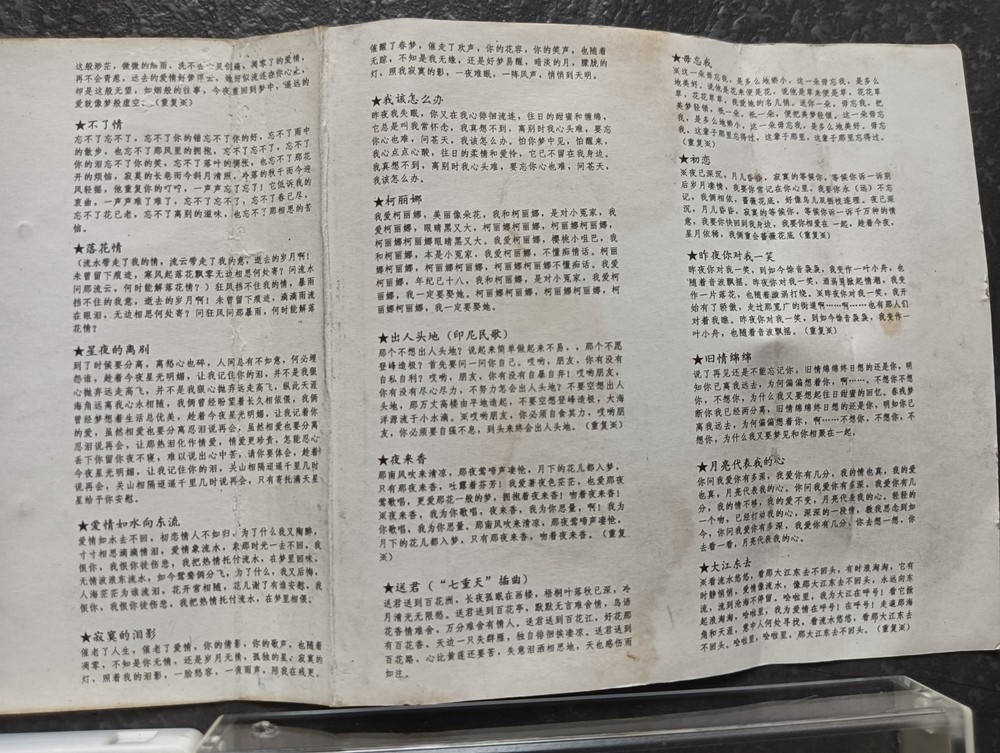 这般渺茫，微微的细雨，洗不去心灵创痛，凋零了的爱情，
再不会青葱，逝去的爱情好梦浮云，她好似流连在你心上，
却是这般无望，如烟般的往事，今夜重回到梦中，遥远的
爱就像梦般虚空。（重复※）
★不了情
忘不了忘不了，忘不了你的错忘不了你的好，忘不了雨中
的散步，也忘不了那风里的拥抱，忘不了忘不了，忘不了
你的泪忘不了你的笑，忘不了落叶的惆怅，也忘不了那花
开的烦恼，寂寞的长巷而今斜月清照，冷落的秋千而今迎
风轻摇，他重复你的叮咛，一声声忘了忘了！它低诉我的
衷曲，一声声难了难了，忘不了忘不了，忘不了春已尽，
忘不了花已老，忘不了离别的滋味，也忘不了那相思的苦
恼。
★落花情
（流水带走了我的情，流云带走了我的意，逝去的岁月啊！
未曾留下痕迹，寒风起落花飘零无边相思何处寄？问流水
问那流云，何时能解落花情？）狂风挡不住我的情，暴雨
挡不住我的意，逝去的岁月啊！未曾留下痕迹，滴滴雨流
在眼泪，无边相思何处寄？问狂风问那暴雨，何时能解落
花情？
★星夜的离别
到了时候要分离，离愁心也碎，人间总有不如意，何必埋
怨谁，趁着今夜星光明媚，让我记住你的泪，并不是我狠
心抛弃远走高飞，并不是我狠心抛弃远走高飞，纵此天涯
海角远离我心永相随，我俩曾经盼望着长久相依偎，我俩
曾经梦想着生活总优美，趁着今夜星光明媚，让我记着你
的爱，虽然相爱也要分离忍泪说再会，虽然相爱也要分离
忍泪说再会，让那热泪化作情爱，情爱更珍贵，怎能忍心
丢下你留你夜不寝，难以说出心中苦，请你要体会，趁着
今夜星光明媚，让我记住你的泪，关山相隔迢遥千里几时
说再会，关山相隔迢遥千里几时说再会，只有寄托满天星
星给予你安慰。
★爱情如水向东流
爱情如水去不回，初恋情人不如归，为了什么我又陶醉，
寸寸相思滴滴情泪，爱情象流水，象那时光一去不回，我
恨你，我恨你徒伤悲，我把热情托付流水，在梦里回味，
无情波浪东流水，如今鸳鸯俩分飞，为了什么，我又后悔，
人海茫茫为谁流泪，花开常相随，花儿谢了有谁安慰，我
恨你，我恨你徒伤悲，我把热情托付流水，在梦里相偎。
★寂寞的泪影
催老了人生，催老了爱情，你的倩影，你的歌声，也随着
凋零，不知是你无情，还是岁月无情，孤独的星，寂寞的
灯，照着我的泪影，一脸愁容，一夜雨声，陪我在残更。
催醒了春梦，催走了欢声，你的花容，你的笑声，也随着
无踪，不知是我无缘，还是好梦易醒，暗淡的月，朦胧的
灯，照我寂寞的影，一夜难眠，一阵风声，悄悄到天明。
★我该怎么办
昨夜我失眠，你又在我心徘徊流连，往日的甜蜜和缠绵，
它总是叫我常怀念，我真想不到，离别时我心头难，要忘
你心也难，问苍天，我该怎么办。怕你梦中见，怕醒来，
我心点点心酸，往日的柔情和爱怜，它已不留在我身边，
我真想不到，离别时我心头难，要忘你心也难，问苍天，
我该怎么办。
★柯丽娜
我爱柯丽娜，美丽像朵花，我和柯丽娜，是对小冤家，我
爱柯丽娜，眼睛黑又大。柯丽娜柯丽娜，柯丽娜柯丽娜，
柯丽娜柯丽娜眼睛黑又大。我爱柯丽娜，樱桃小咀巴，我
和柯丽娜，本是小冤家，我爱柯丽娜，不懂痴情话。柯丽
娜柯丽娜，柯丽娜柯丽娜，柯丽娜柯丽娜不懂痴话。我爱
柯丽娜，年纪已十八，我和柯丽娜，是对小冤家，我爱柯
丽娜，我一定要娶她。柯丽娜柯丽娜，柯丽娜柯丽娜，柯
丽娜柯丽娜，我一定要娶她。
★出人头地（印尼民歌）
那个不想出人头地？说起来简单做起来不易，，那个不愿
登峰造极？首先要问一问你自己，哎哟，朋友，你有没有
自私自利？哎哟，朋友，你有没有自暴自弃！哎哟，朋友，
你有没有尽心尽力，不努力怎会出人头地？不要空想出人
头地，那万丈高楼由平地造起，不要空想登峰造极，大海
洋源流于小水滴，※哎哟朋友，你必须自食其力，哎哟朋
友，你必须要自强不息，到头来终会出人头地。（重复※）
★夜来香
那南风吹来清凉，那夜莺啼声凄怆，月下的花儿都入梦，
只有那夜来香，吐露着芬芳！我爱萧夜色茫茫，也爱那夜
莺歌唱，更爱那花一般的梦，拥抱着夜来香！吻着夜来香！
※夜来香，我为你歌唱，夜来香，我为你思量，啊！我为
你歌唱，我为你思量，那南风吹来清凉，那夜莺啼声凄怆，
月下的花儿都入梦，只有那夜来香，吻着夜来香。（重复
※）
★送君（“七重天”插曲）
送君送到百花洲，长夜孤眠在画楼，梧桐叶落秋已深，冷
月清光无限愁。送君送到百花亭，默默无言难舍情，鸟语
花香情难舍，万分难舍有情人。送君送到百花江，好花那
有百花香，天边一只失群雁，独自徘徊挨凄凉。送君送到
百花路，心比黄莲还要苦，失意泪洒相思地，天也感伤雨
如注。
★毋忘我
※这一朵毋忘我，是多么地娇小，这一朵毋忘我，是多么
地美好，说他是花来便是花，说他是草来便是草，花花草
草，花花草草，我爱她的名儿俏。送你一朵，毋忘我，把
美梦轻领，祗一朵，祗一朵，便把美梦轻领，这一朵毋忘
我，是多么地娇小，这一朵毋忘我，是多么地美好。毋忘
我，这辈子那里忘得过，这辈子那里，这辈子那里忘得过。
（重复※）
★初恋
※夜已深沉，月儿昏昏，寂寞的等候你，等候你诉一诉别
后岁月凄情，我要你常记在你心里，我要你永（远）不忘
记，我俩相依，蔷薇花底，好像鸟儿双栖枝连理。夜已深
沉，月儿昏昏，寂寞的等候你，等候你诉一诉千万种的情
意，我要你快回到我身边，我要你相爱在一起，趁着今夜，
星月依稀，我俩重会蔷薇花底（重复※）
★昨夜你对我一笑
昨夜你对我一笑，到如今馀音袅袅，我变作一叶小舟，也
随着音波飘摇。昨夜你对我一笑，酒涡里掀起情潮，我变
作一片落花，也随着漩涡打绕。※昨夜你对我一笑，我开
始有了骄傲，走过那宽广的街道啊……啊……也有那人们
对着我瞧。昨夜你对我一笑，到如今馀音袅袅，我变作一
叶小舟，也随着音波飘摇。（重复※）
★旧情绵绵
说了再见还是不能忘记你，旧情绵绵终日想的还是你，明
知你已离我远去，为何偏偏想着你，啊……，不想你不想
你，不想你，为什么我又要想起往日甜蜜的回忆。春残梦
断你我已经两分离，旧情绵绵终日想的还是你，明知你已
离我远去，为何偏偏想着你，啊……不想你，不想你，不
想你，为什么我又要梦见和你相聚在一起。
★月亮代表我的心
你问我爱你有多深，我爱你有几分，我的情也真，我的爱
也真，月亮代表我的心。你问我爱你有多深，我爱你有几
分，我的情不移，我的爱不变，月亮代表我的心。轻轻的
一个吻，已经打动我的心，深深的一段情，教我思念到如
今，你问我爱你有多深，我爱你有几分，你去想一想，你
去看一看，月亮代表我的心。
★大江东去
※看流水悠悠，看那大江东去不回头，有时浪淘淘，它有
时静悄悄，爱情像流水，像那大江东去不回头，永远向东
流，流到沧海不停留。哈啦里，我为大江在呼号！看它掀
起浪淘淘，哈啦里，我为爱情在呼号！在呼号！走遍那海
角和天涯，意中人何处寻找，看流水悠悠，看那大江东去
不回头，哈啦里，哈啦里，那大江东去不回头。（重复※）